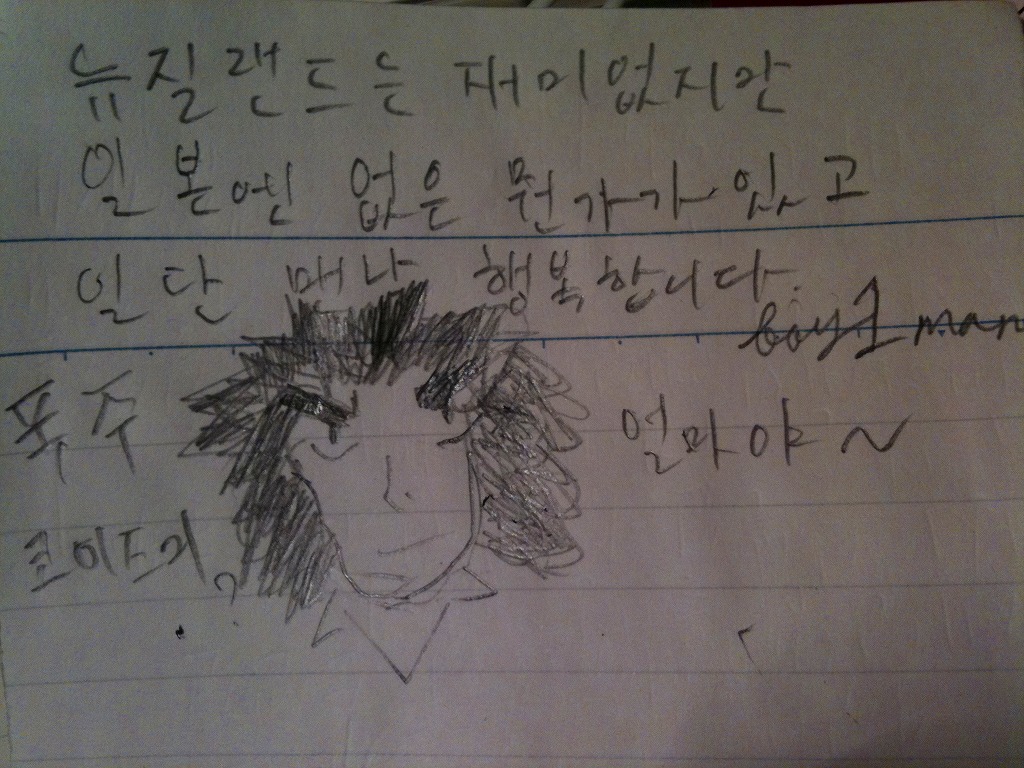 뉴질랜드는 재미없지만
일본엔 없은 뭔가가 있고
일단 매나 행복합니다.
boy 1 man
폭주
얼마야~